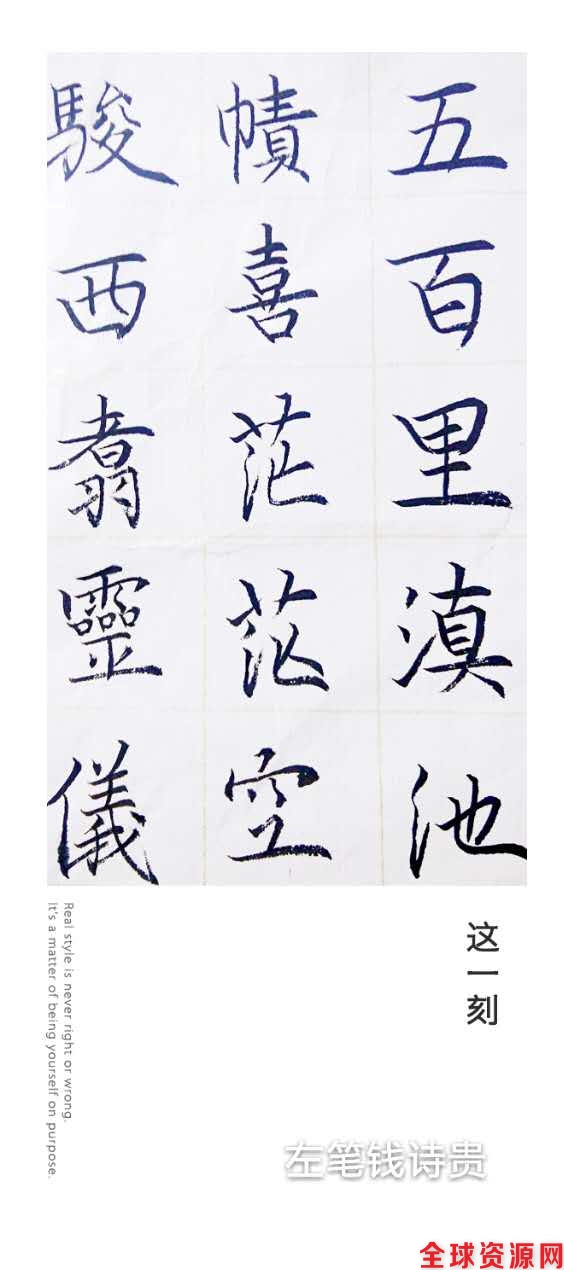 五百里滇池
幘喜茫茫空
駿西翥靈儀
这一刻
Real style is never right or wrong.
It's a matter of being yourself on purpose.
左笔钱诗贵
全球资源网